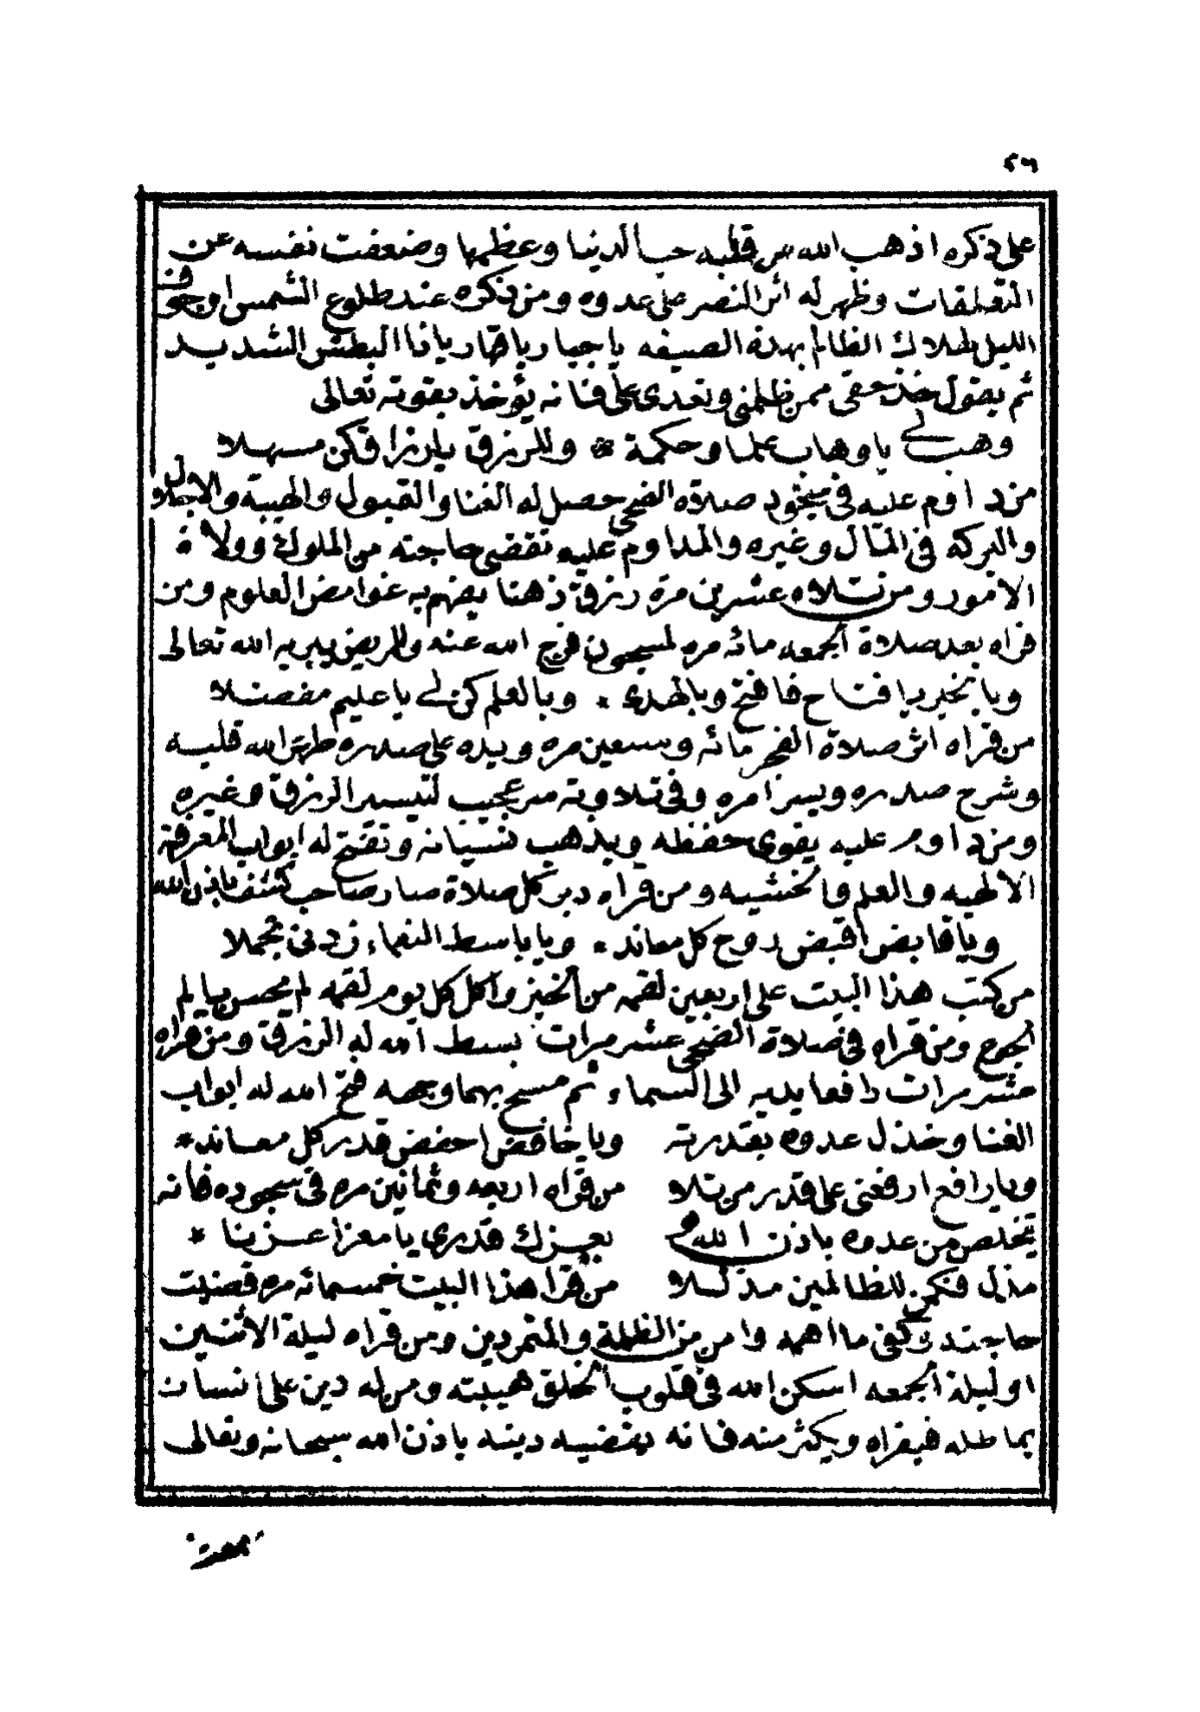 ٢٦
على ذكره اذهب الله من قلبه حب الدنيا وعظمها وضعفت نفسه عن
التعلقات وظهر له اثر النصر على عدوه ومن ذكره عند طلوع الشمس او جوف
الليل لهلاك الظالم بهذة الصيغه يا جبار يا قهار يا ذا البطش الشديد
ثم يقول خذ حقى ممن ظلمنى وتعدى على فانه يؤخذ بقوته تعالى
وهب لي يا وهاب علما وحكمة * وللرزق يا رزاق كن مسهلا
من داوم عليه فى سجود صلاة الضحى حصل له الغنا والقبول والهيبة والاجلال
والبركه فى المال وغيره والمداوم عليه تقضى حاجته من الملوك وولاة
الامور ومن تلاه عشرين مرة رزق ذهنا يفهم به غوامض العلوم ومن
قراه بعد صلاة الجمعه مائه مره لمسجون فرج الله عنه وللمريض يبريه الله تعالى
وبالخير يا فتاح فافتح وبالهدى * وبالعلم كن لي يا عليم مفضلا
من قراه اثر صلاة الفجر مائه وسبعين مره ويده على صدره طهر الله قلبه
وشرح صدره ويسر امره وفى تلاوته سر عجيب لتيسير الرزق وغيره
ومن داوم عليه يقوى حفظه ويذهب نسيانه وتفتح له ابواب المعرفة
الالهيه والعلم والخشيه ومن قراه دبر كل صلاة صار صاحب كشف باذن الله
ويا قابض اقبض روح كل معاند * ويا باسط النعماء زدنى تجملا
من كتب هذا البيت على اربعين لقمه من الخبز واكل كل يوم لقمه لم يحس بالم
الجوع ومن قراه فى صلاة الضحى عشر مرات بسط الله له الرزق ومن قراه
عشر مرات رافعا يديه الى السماء ثم مسح بهما وجهه فتح الله له ابواب
الغنا وخذل عدوه بقدرته ويا خافض اخفض قدر كل معاند *
ويا رافع ارفعنى على قدر من تلا من قراه اربعه وثمانين مره فى سجوده فانه
يتخلص من عدوه باذن الله بعزك قدرى يا معز اعززنا *
مذل فكن للظالمين مذللا من قرا هذا البيت خمسمائه مره قضيت
حاجته وكفى ما اهمه وامن من الظلمة والمتمردين ومن قراه ليلة الاثنين
او ليلة الجمعه اسكن الله فى قلوب الخلق هيبته ومن له دين على انسان
يماطله فيقراه ويكثر منه فانه يقضيه دينه باذن الله سبحانه وتعالى